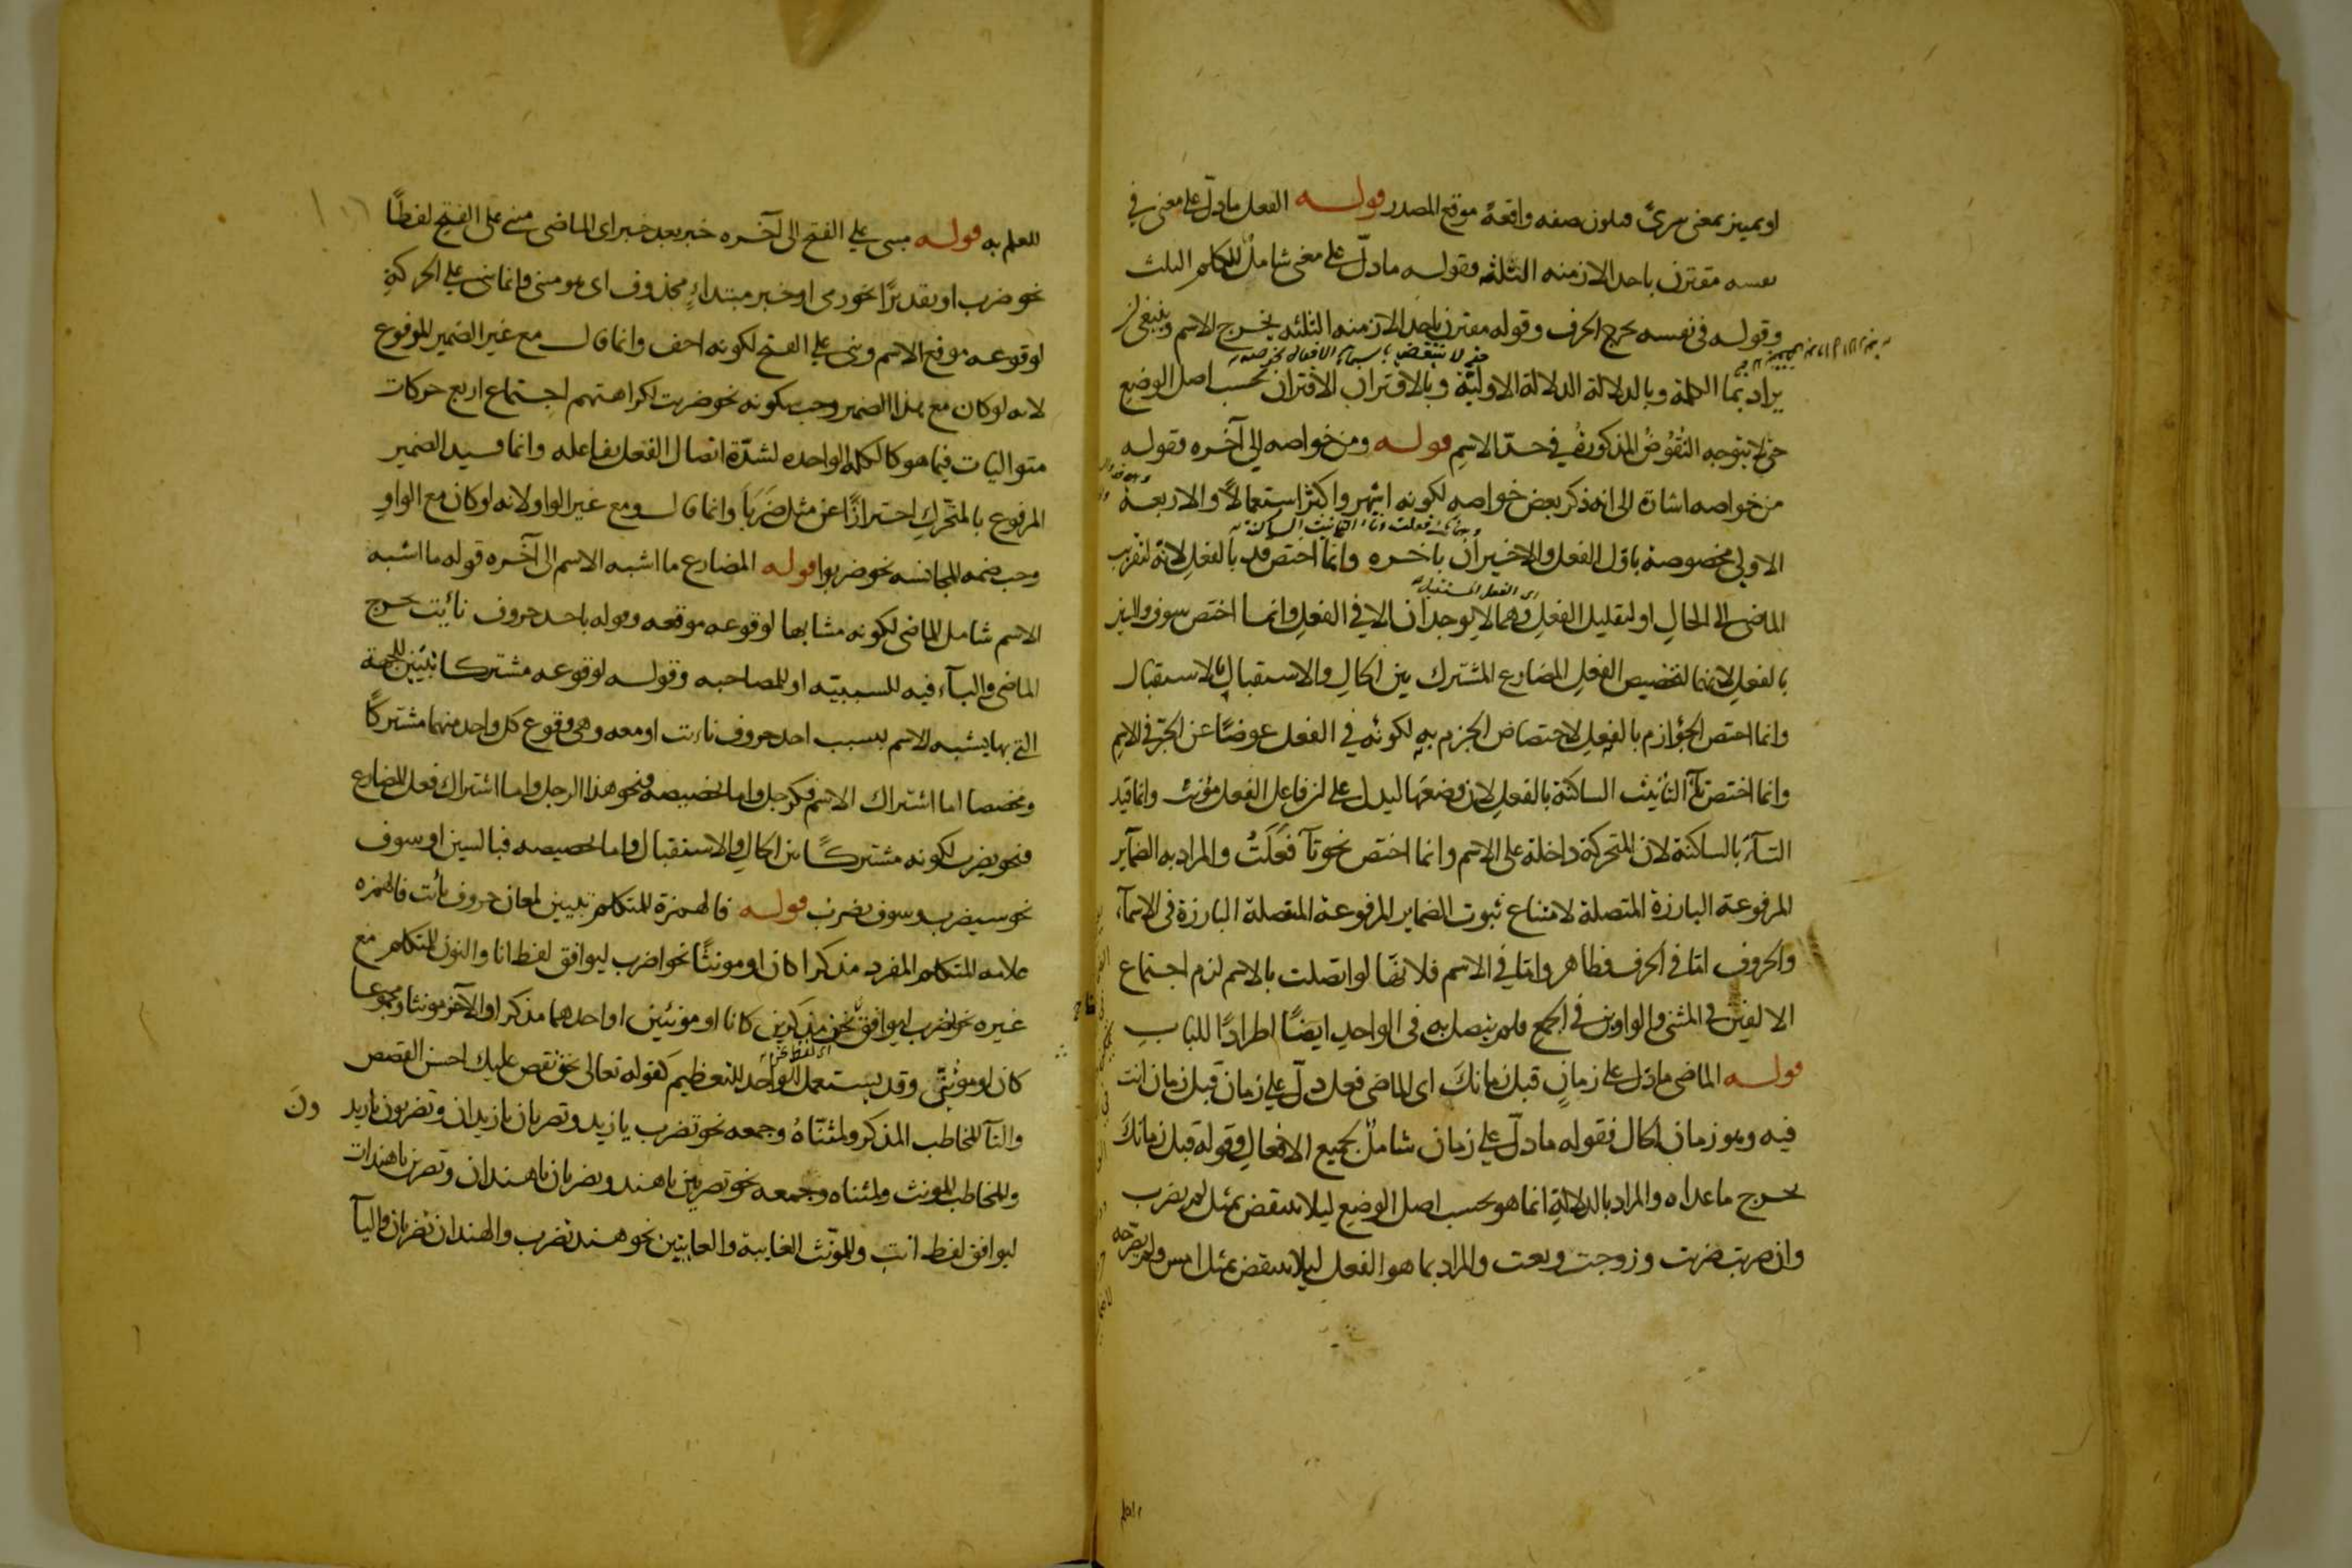 او بميز بمعنى فيكون صفه واقعة موقع المصدر قولـــه الفعل ما دلّ على معنى في
نفسه مقترن باحد الازمنه الثلثة فقولـه ما دلّ على معنى شاملٌ للكلم الثلث
وقولـه في نفسه يخرج الحرف وقوله مقترن باحد الازمنه الثلثه يخرج الاسم وينبغي ان
يراد بما الكلمة وبالدلالة الدلالة الاوليّة وبالاقتران الاقتران بحسب اصل الوضع
حتى لا يتوجه النُقُوضُ المذكورة في حدّ الاسم قولـــه ومن خواصه الى آخره فقوله
من خواصه اشارة الى انه ذكر بعض خواصه لكونه اشهر واكثر استعمالاً والاربعة
الاولى مخصوصة باوّل الفعل والاخيران باخره وانما اختص قد بالفعل لانه لتقريب
الماضي الى الحال او لتقليل الفعل وهما لا يوجدان الا في الفعل وانما اختص سوف والسين
بالفعل لانهما لتخصيص الفعل المضارع المشترك بين الحال والاستقبال بالاستقبال
وانما اختص الجوازم بالفعل لاختصاص الجزم به لكونه في الفعل عوضًا عن الجرّ في الاسم
وانما اختص تآء التأنيث الساكنة بالفعل لان وضعها ليدل على ان فاعل الفعل مؤنث وانما قيد
التآء بالساكنة لان المتحركة داخلة على الاسم وانما اختص نحو تآ فَعَلَتُ والمراد به الضمآير
المرفوعة البارزة المتصلة لامتناع ثبوت الضماير المرفوعة المتصلة البارزة في الاسمآء
والحروف امّا في الحرف فظاهر وامّا في الاسم فلانها لو اتّصلت بالاسم لزم اجتماع
الالفين في المثنى والواوين في الجمع فلم يتصل به في الواحد ايضًا اطرادًا للباب
قولـــه الماضي ما دّل على زمانٍ قبل زمانكَ اى الماضي فعل دلّ على زمان قبل زمان انت
فيه وهو زمان الحال فقوله ما دلّ على زمان شاملٌ لجميع الافعال وقوله قبل زمانكَ
يخرج ما عداه والمراد بالدلالة انما هو بحسب اصل الوضع ليلا ينتقض بمثل لم يضرب
وان ضربت ضربت وزوجت وبعت والمراد بما هو الفعل ليلا ينتقض بمثل امس
للعلم به قولـــه مبنى على الفتح الى آخره خبر بعد خبر اى الماضي مبنى على الفتح لفظًا
نحو ضرب او تقديرًا نحو رمى او خبر مبتداءٍ محذوف اى هو مبنى وانما بنى على الحركة
لوقوعه موقع الاسم وبنى على الفتح لكونه اخف وانما قال مع غير الضمير المرفوع
لانه لو كان مع هذا الضمير وجب سكونه نحو ضربت لكراهتهم اجتماع اربع حركات
متواليات فيما هو كالكلمة الواحده لشدّة اتصال الفعل بفاعله وانما قيد الضمير
المرفوع بالمتحرّك احترازًا عن مثل ضَرَبَا وانما قال ومع غير الواو لانه لو كان مع الواو
وجب ضمه للمجانسه نحو ضربوا قوله المضارع ما اشبه الاسم الى آخره قوله ما اشبه
الاسم شامل للماضي لكونه مشابها لوقوعه موقعه وقوله باحد حروف نأيت يخرج
الماضي والبآء فيه للسببيّه او للمصاحبه وقولـه لوقوعه مشتركا تبيين للجهة
التي بها يشبه الاسم بسبب احد حروف نايت او معه وهي وقوع كل واحد منهما مشتركًا
ومخصصا اما اشتراك الاسم فكرجل واما تخصيصه فنحو هذا الرجل واما اشتراك فعل المضارع
فنحو يضرب لكونه مشتركًا بين الحال والاستقبال واما تخصيصه فبالسين او سوف
نحو سيضرب وسوف يضرب قولـــه فالهمزة للمتكلم تبيين لمعان حروف نأيت فالهمزه
علامه للمتكلم المفرد مذكرا كان او مونثًا نحو اضرب ليوافق لفظ انا والنون للمتكلم مع
غيره نحو نضرب ليوافق نحن مذكرين كانا او مؤنثين او احدهما مذكرا والآخر مونثا ومجموعا
كان او مؤنثى وقد يستعمل للواحد للتعظيم كقوله تعالى نحن نقص عليك احسن القصص
والتآ للمخاطب المذكر ولمثنّاهُ وجمعه نحو تضرب يا زيد وتضربان يا زيدان وتضربون يا زيد
ونَ
وللمخاطب المونث ولمثناه وجمعه نحو تضربين يا هند وتضربان يا هندان وتضربن يا هندات
ليوافق لفظ انت وللمؤنث الغايبة والغايبتين نحو هند تضرب والهندان تضربان واليآ